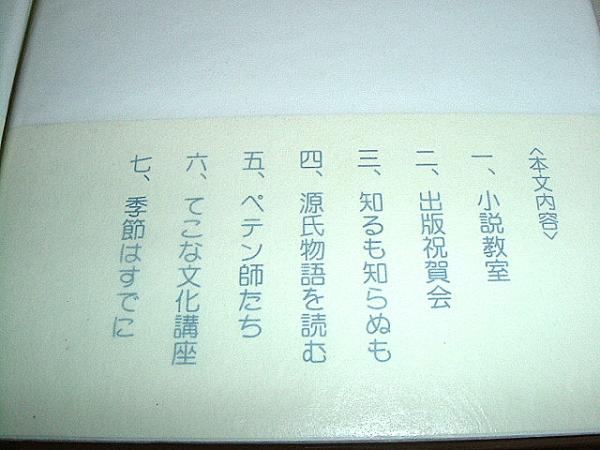 <本文内容>
一、小説教室
二、出版祝賀会
三、知るも知らぬも
四、源氏物語を読む
五、ペテン師たち
六、てこな文化講座
七、季節はすでに